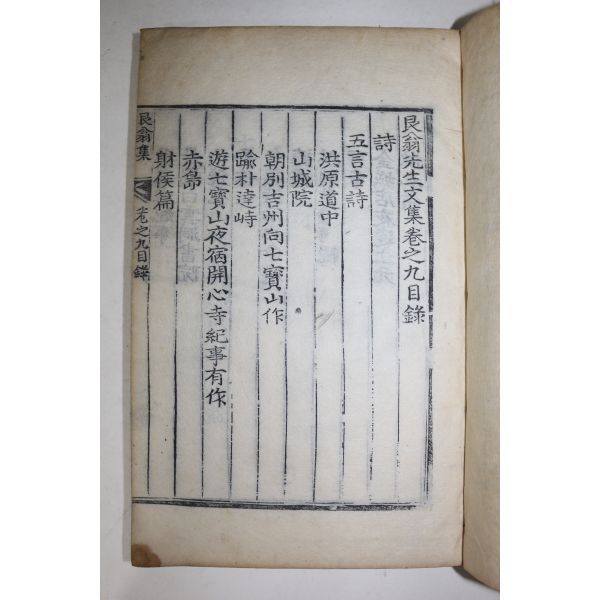 艮翁先生文集卷之九目錄
詩
五言古詩
洪原道中
山城院
朝別吉州向七寶山作
踰朴達峙
遊七寶山夜宿開心寺紀事有作
赤島
射侯篇
艮翁集
卷之九目錄